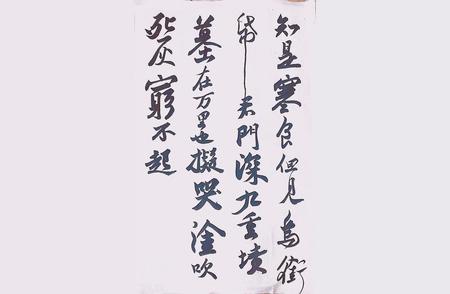 知是寒食但見烏銜
帋君門深九重墳
墓在万里也擬哭塗吹
死灰窮不起